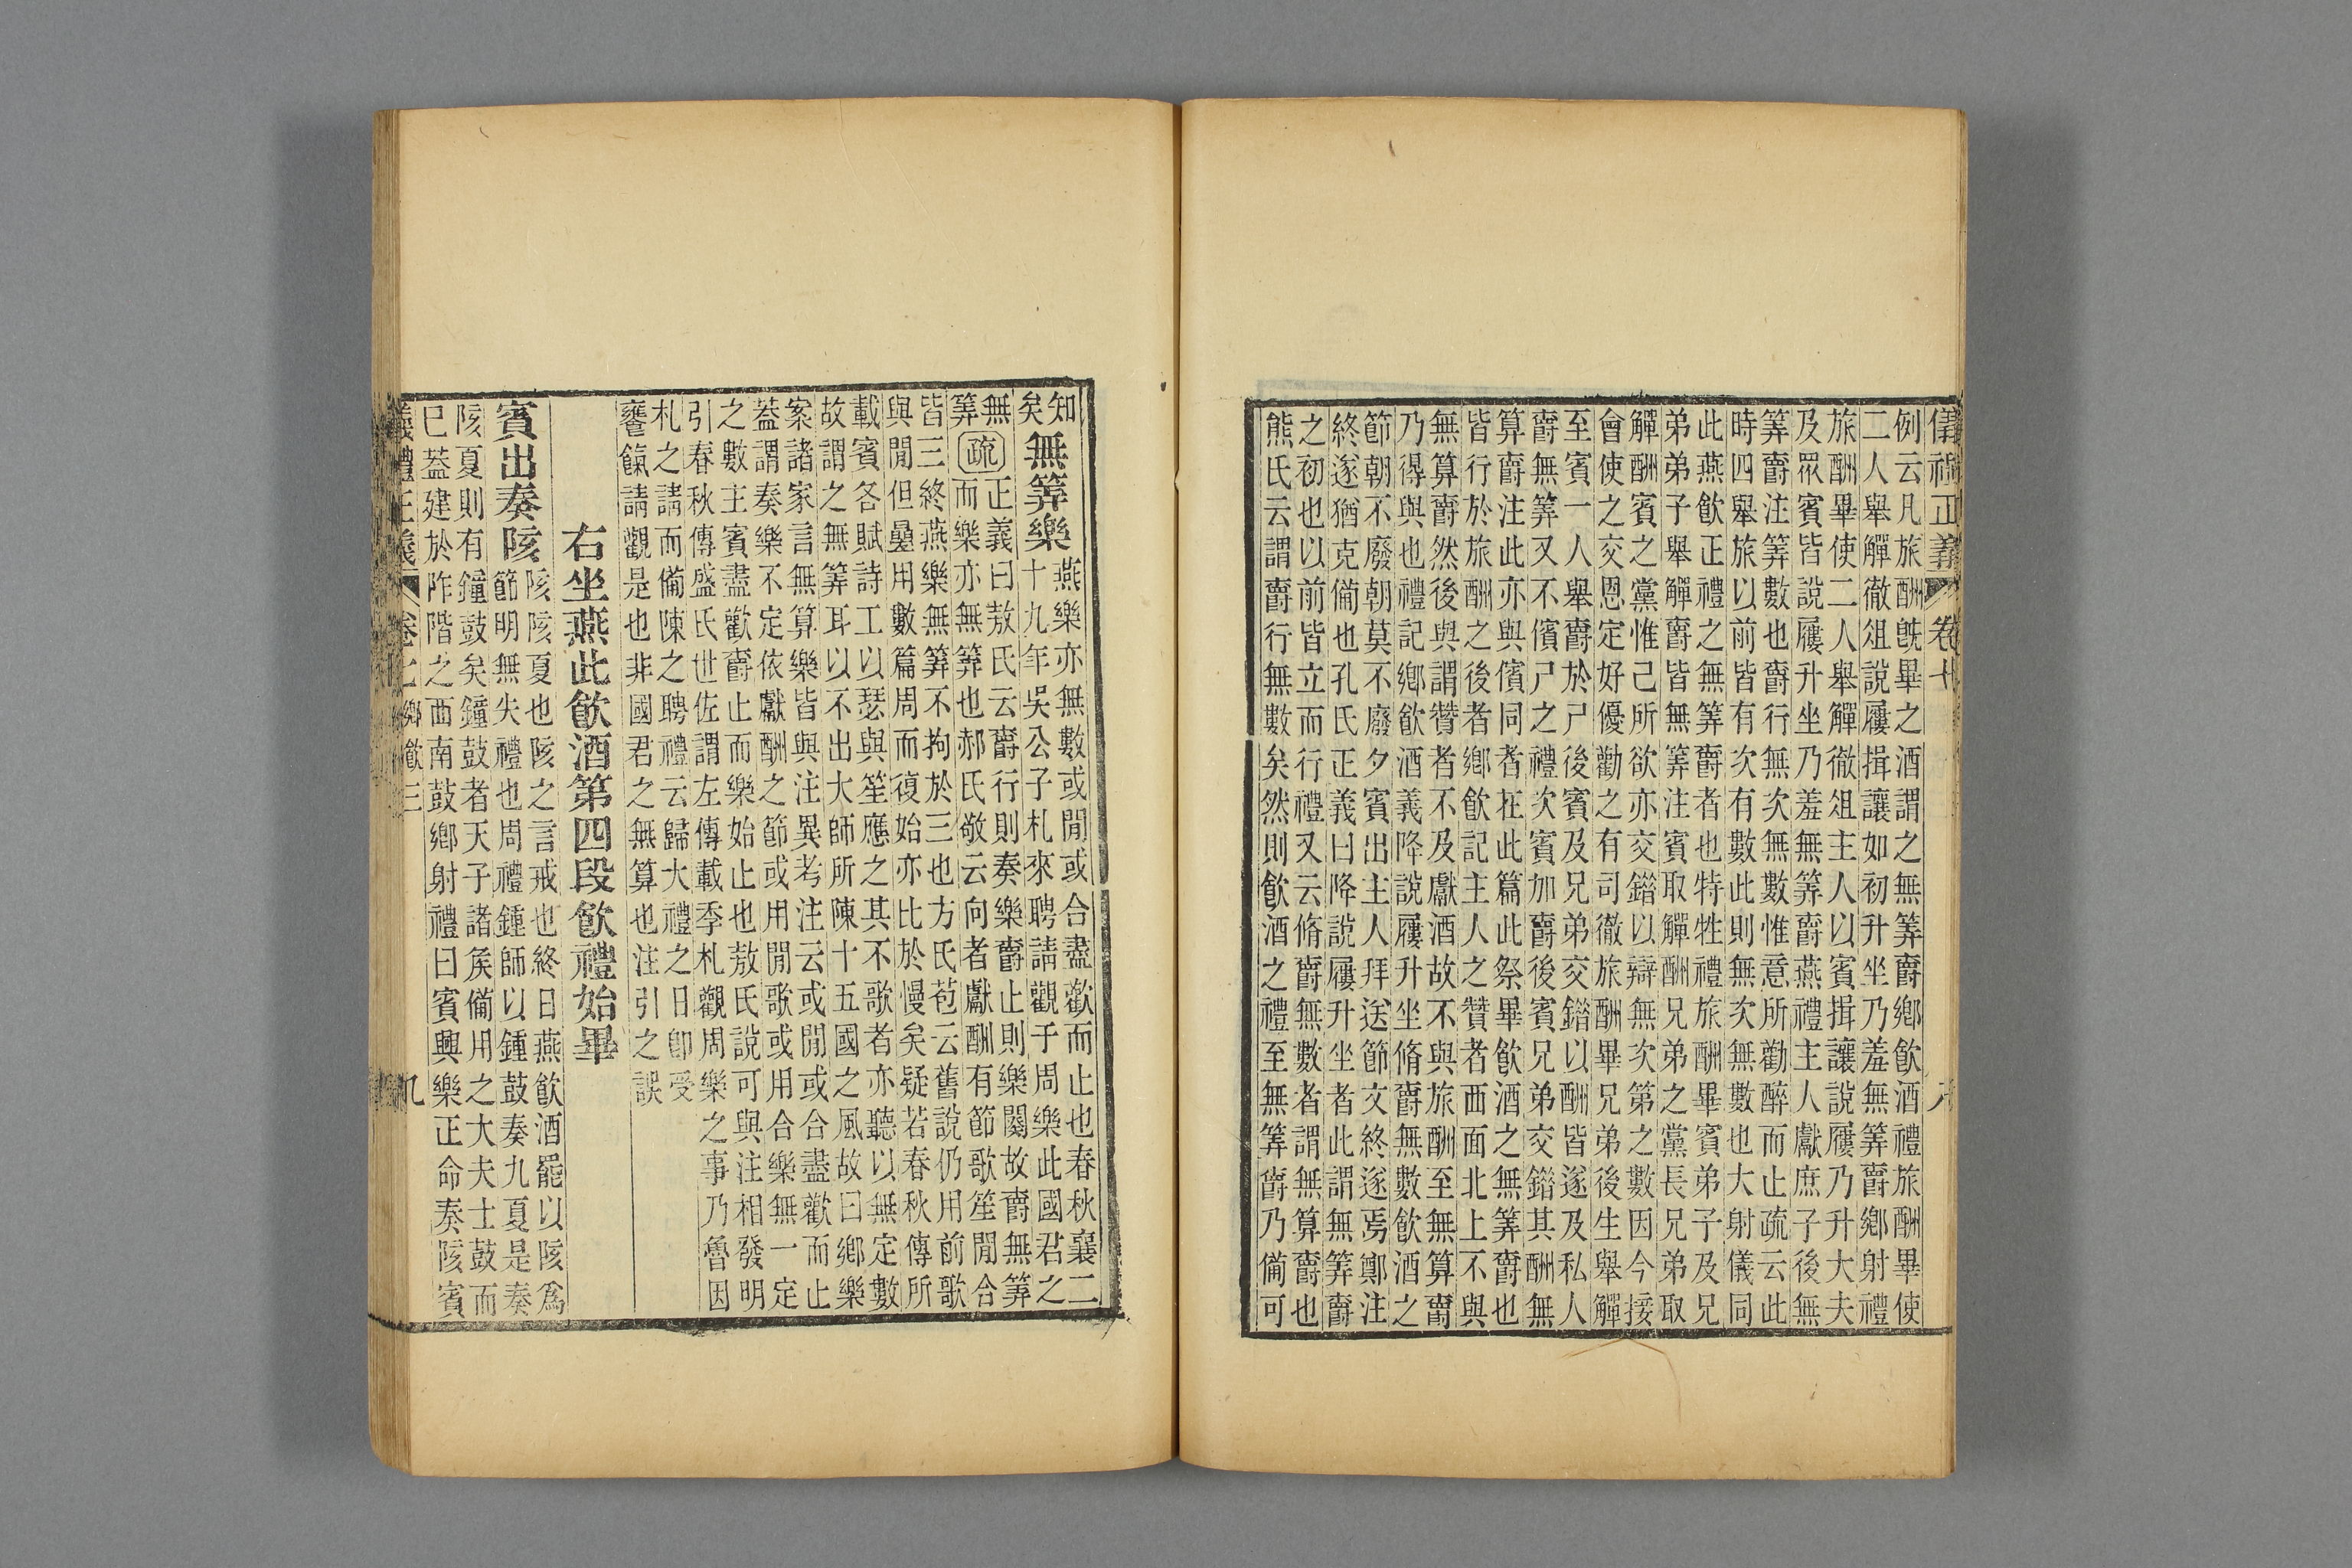 儀禮正義 卷七 八
例云凡旅酬旣畢之酒謂之無筭爵鄉飲酒禮旅酬畢使
二人舉觶徹俎說屨揖讓如初升坐乃羞無筭爵鄉射禮
旅酬畢使二人舉觶徹俎主人以賓揖讓說屨乃升大夫
及眾賓皆說屨升坐乃羞無筭爵燕禮主人獻庶子後無
筭爵注筭數也爵行無次無數惟意所勸醉而止疏云此
時四舉旅以前皆有次有數此則無次無數也大射儀同
此燕飲正禮之無筭爵者也特牲禮旅酬畢賓弟子及兄
弟弟子舉觶爵皆無筭注賓取觶酬兄弟之黨長兄弟取
觶酬賓之黨惟己所欲亦交錯以辯無次第之數因今接
會使之交恩定好優勸之有司徹旅酬畢兄弟後生舉觶
至賓一人舉爵於尸後賓及兄弟交錯以酬皆遂及私人
爵無筭又不儐尸之禮次賓加爵後賓兄弟交錯其酬無
算爵注此亦與儐同者在此篇此祭畢飲酒之無筭爵也
皆行於旅酬之後者鄉飲記主人之贊者西面北上不與
無算爵然後與謂贊者不及獻酒故不與旅酬至無算爵
乃得與也禮記鄉飲酒義降說屨升坐脩爵無數飲酒之
節朝不廢朝莫不廢夕賓出主人拜送節文終遂焉鄭注
終遂猶克備也孔氏正義曰降說屨升坐者此謂無筭爵
之初也以前皆立而行禮又云脩爵無數者謂無算爵也
熊氏云謂爵行無數矣然則飲酒之禮至無筭爵乃備可
知
矣
無筭樂
燕樂亦無數或閒或合盡歡而止也春秋襄二
十九年吳公子札來聘請觀于周樂此國君之
無疏正義曰敖氏云爵行則奏樂爵止則樂闋故爵無筭
筭而樂亦無筭也郝氏敬云向者獻酬有節歌笙閒合
皆三終燕樂無筭不拘於三也方氏苞云舊說仍用前歌
與閒但曡用數篇周而復始亦比於慢矣疑若春秋傳所
載賓各賦詩工以瑟與笙應之其不歌者亦聽以無定數
故謂之無筭耳以不出大師所陳十五國之風故曰鄉樂
案諸家言無算樂皆與注異考注云或閒或合盡歡而止
蓋謂奏樂不定依獻酬之節或用閒歌或用合樂無一定
之數主賓盡歡爵止而樂始止也敖氏說可與注相發明
引春秋傳盛氏世佐謂左傳載季札觀周樂之事乃魯因
札之請而備陳之聘禮云歸大禮之日卽受
饔餼請觀是也非國君之無算也注引之誤
右坐燕此飲酒第四段飲禮始畢
賓出奏陔
陔陔夏也陔之言戒也終日燕飲酒罷以陔爲
節明無失禮也周禮鍾師以鍾鼓奏九夏是奏
陔夏則有鐘鼓矣鐘鼓者天子諸侯備用之大夫士鼓而
巳蓋建於阼階之西南鼓鄉射禮曰賓興樂正命奏陔賓
儀禮正義 卷七 鄉飲三 九